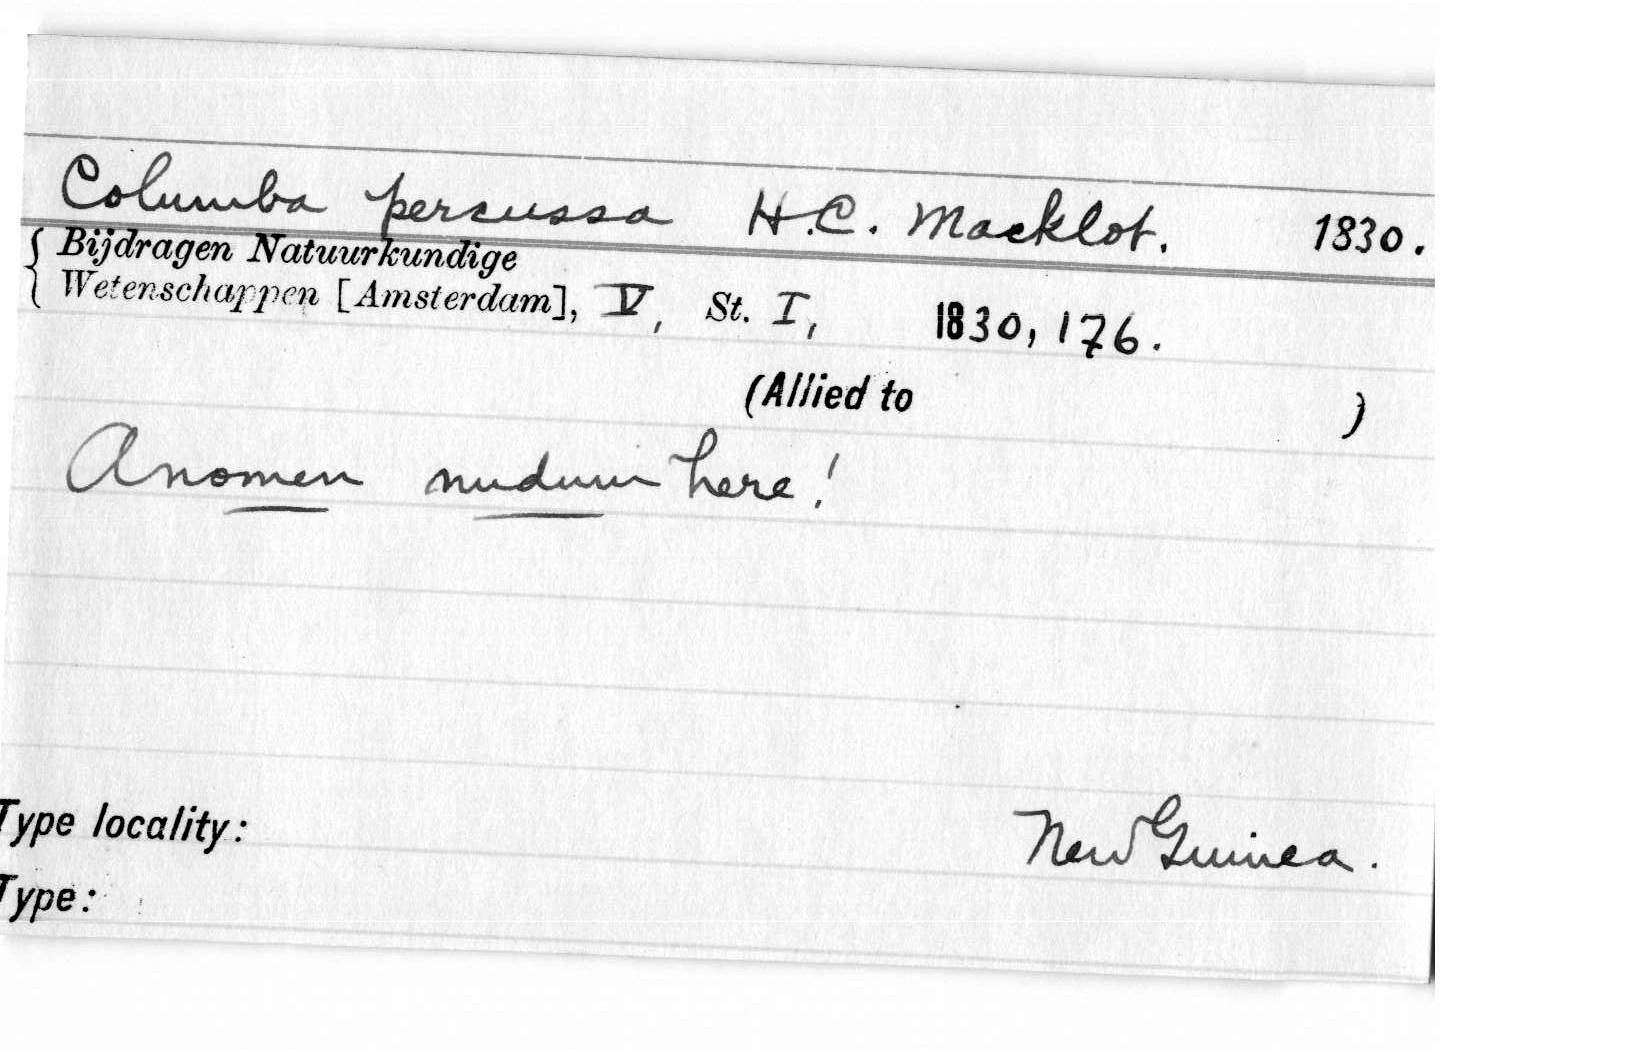 Columba percussa H.C. Macklot. 1830.
Bijdragen Natuurkundige
Wetenschappen [Amsterdam], V, St. I, 1830, 176.
(Allied to )
A nomen nudum here!
Type locality: New Guinea.
Type: